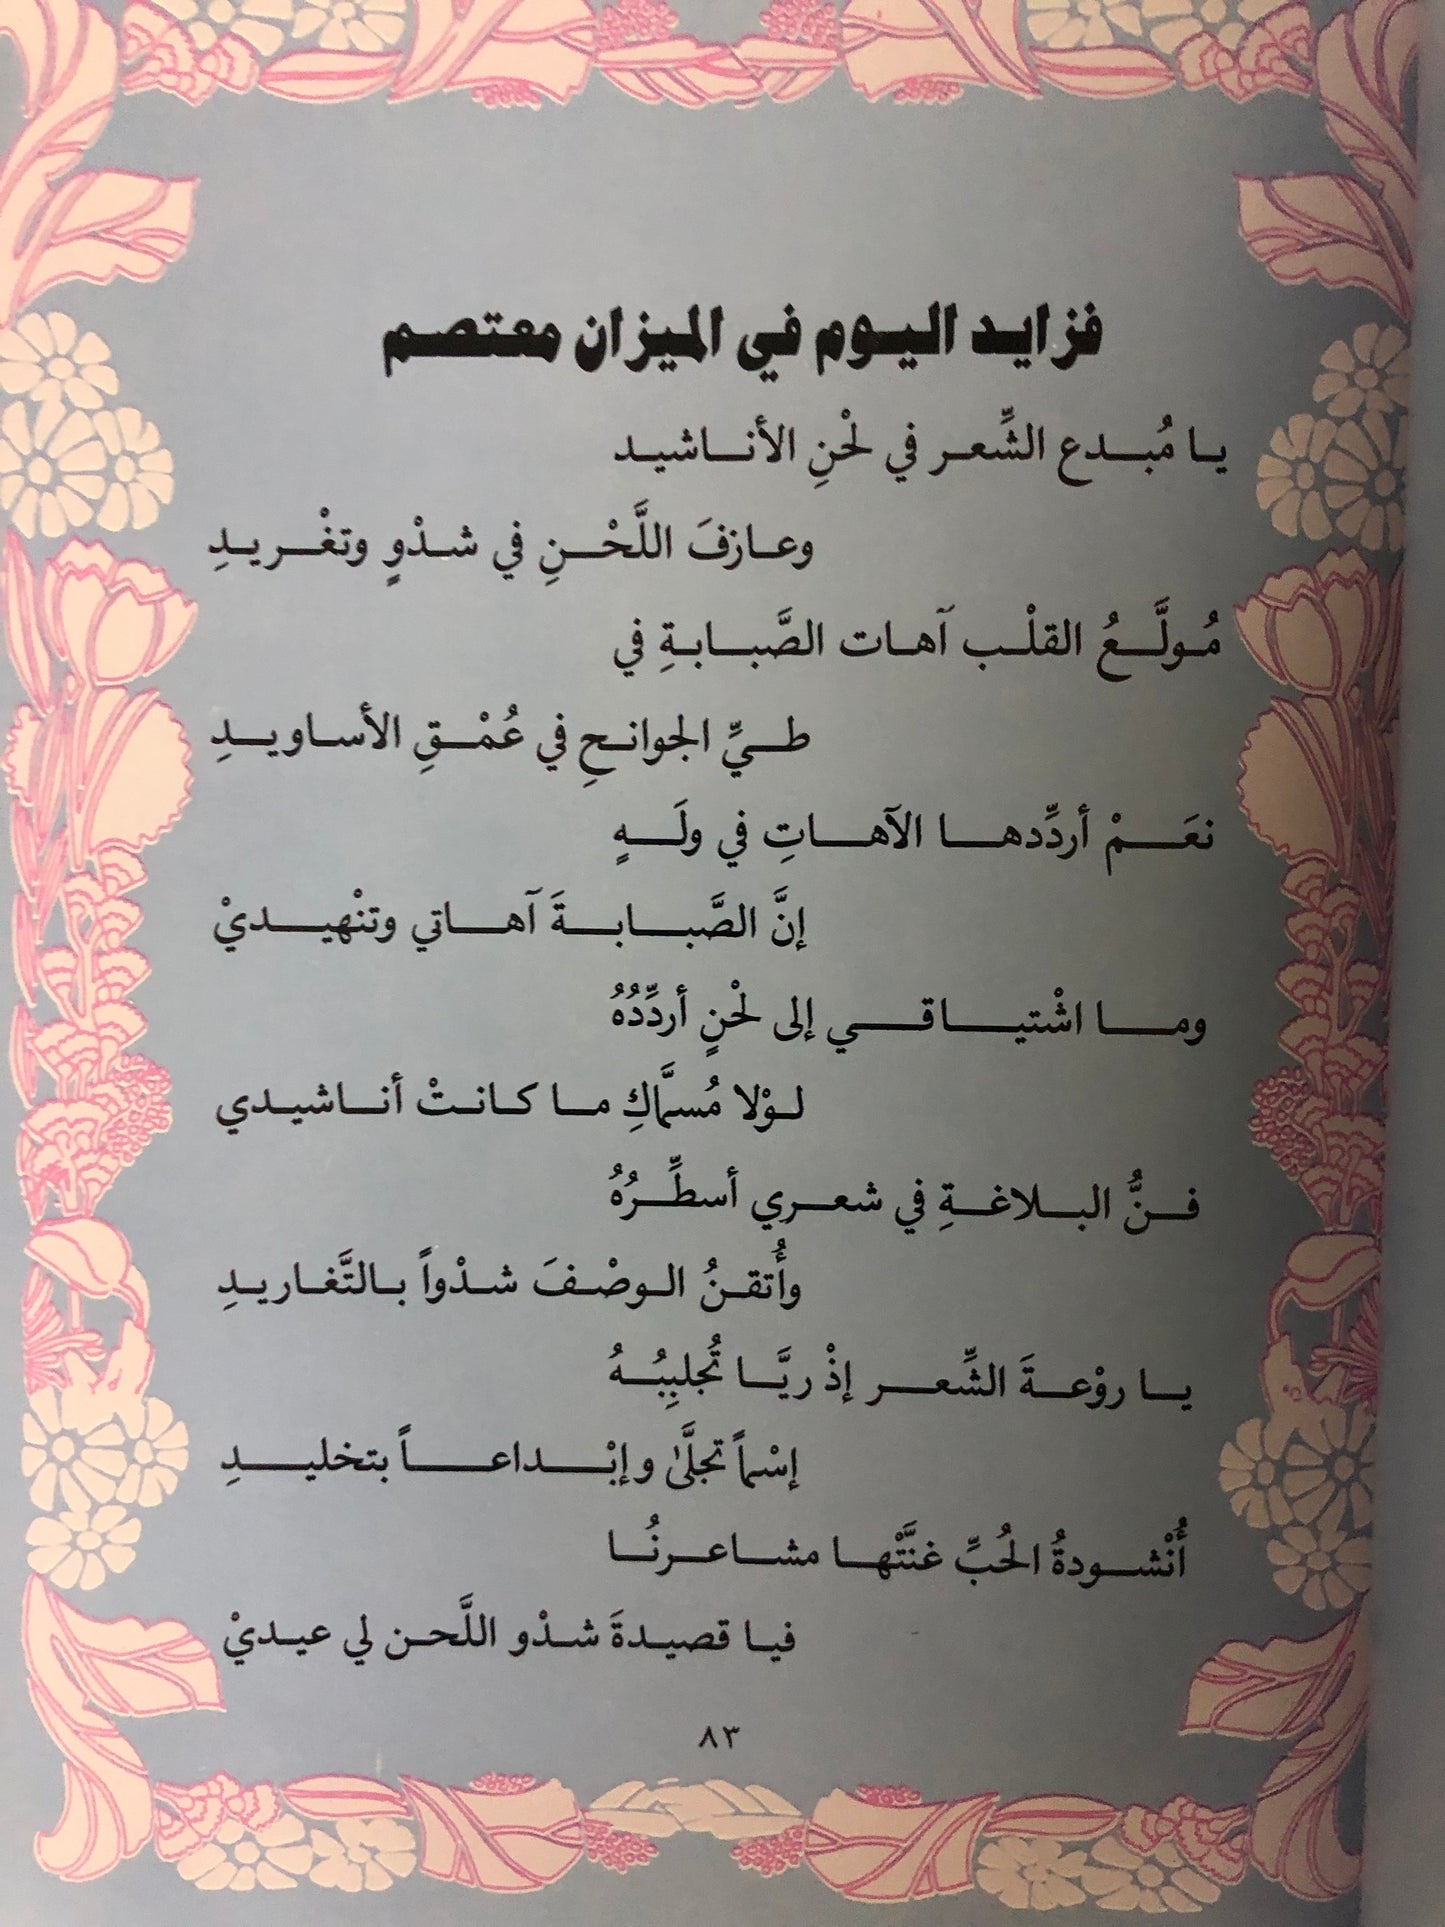 فزايد اليوم في الميزان معتصم
يا مُبدع الشِّعر في لحْنِ الأناشيد
وعازفَ اللَّحْنِ في شدْوٍ وتغْريدِ
مُولَّعُ القلْب آهات الصَّبابةِ في
طيِّ الجوانحِ في عُمْقِ الأساويدِ
نعَمْ أردِّدها الآهاتِ في ولَهٍ
إنَّ الصَّبابةَ آهاتي وتنْهيديْ
وما اشْتياقي إلى لحْنٍ أردِّدُهُ
لوْلا مُسمَّاكِ ما كانتْ أناشيدي
فنُّ البلاغةِ في شعري أسطِّرُهُ
وأُتقنُ الوصْفَ شدْواً بالتَّغاريدِ
يا روْعةَ الشِّعر إذْ ريَّا تُجلبِبُهُ
إسْماً تجلَّىٰ وإبْداعاً بتخليدِ
أُنْشودةُ الحُبِّ غنَّتْها مشاعرنُا
فيا قصيدةَ شدْو اللَّحن لي عيديْ
٨٣